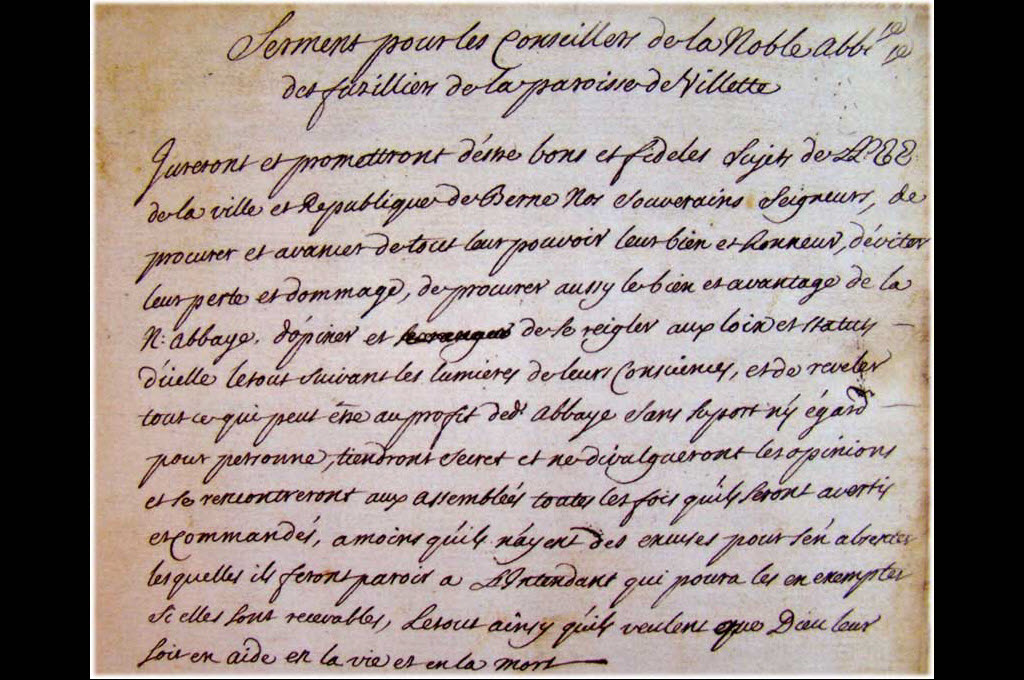 Serment pour les Conseillers de la Noble Abb
des fuzilliers de la paroisse de Villette
Jureront et promettront déstre bons et fideles Sujets de LL: EE:
de la ville et Republique de Berne Nos Souverains Seigneurs, de
procurer et avancer de tout leur pouvoir leur bien et honneur, d'éviter
leur perte et dommage, de procurer aussy le bien et avantage de la
N: Abbaye. d'ópiner et de se reigler aux loix et statuts
d'icelle le tout suivant les lumières de leurs Consciences, et de reveler
tout ce qui peut être au profit de d.t Abbaye Sans suport n'y égard
pour personne, tiendront Secret et ne divulgueront les opinions
et se rencontreront aux assemblées toutes les fois qu'ils seront avertis
et commandés, a moins qu'ils n'ayent des excuses pour s'én absenter
lesquelles ils feront paroir a L'Intendant qui poura les en exempter
Si elles sont recevables, Le tout ainsy qu'ils veulent que Dieu leur
soit en aide en la vie et en la mort